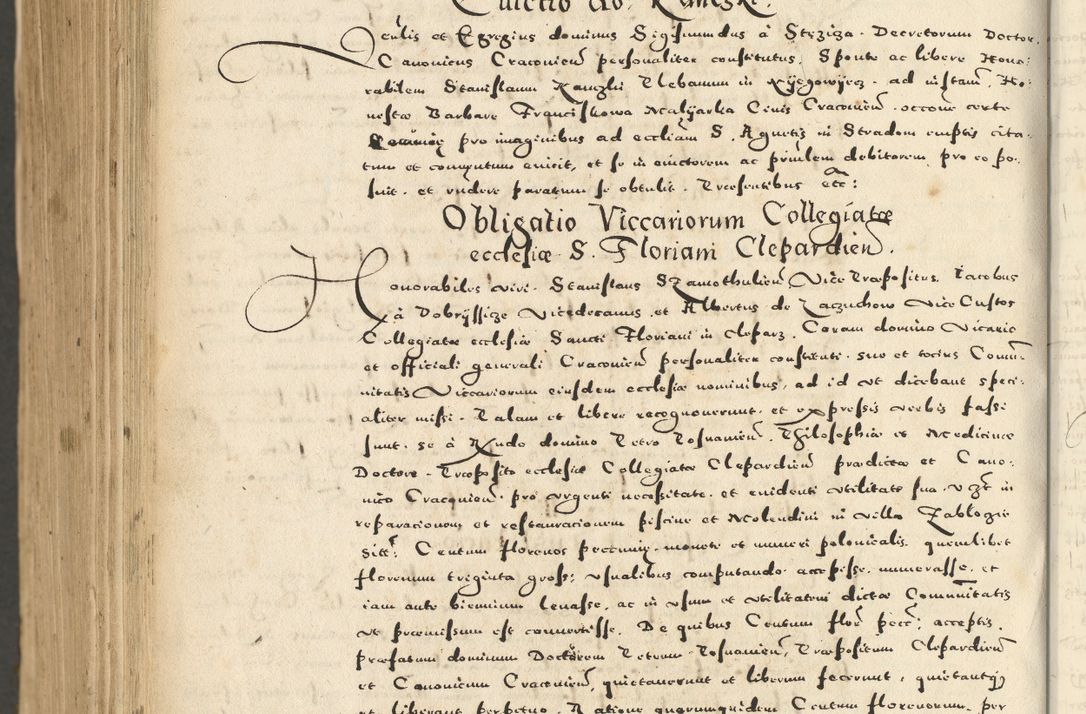 Venerabilis et Egregius dominus Sigismundus à Stęzicza. Decretorum Doctor,
Canonicus Cracovien̄ personaliter constitutus. Sponte ac libere Hono:
rabilem Stanislaum Kanczki Plebanum in ad instan̄. Ho:
nestæ Barbaræ Franciskowa Malijarka Civis Cracovien̄. occōne certæ
pro imaginibus ad eccliam S. Agnetis in Stradom emptis cita:
tum et convictum eiicit, et se in evictorem ac prīnlem debitorem pro eo po:
suit. et rn̄dere paratum se obtulit. Præsentibus etc:
Obligatio Viccariorum Collegiatæ
ecclesiæ S. Floriani Clepardien̄.
Honorabiles viri. Stanislaus Szamothulien̄ Vice Præpositus. Iacobus
à Dobrzyssicze Vicedecanus. et Albertus de Zaczuchow Vice Custos
Collegiatæ ecclesiæ Sancti Floriani in Cleparz. Coram domino Vicario
et officiali generali Cracovien̄ personaliter constituti. suo et totius Comū:
nitatis Viccariorum eiusdem ecclesiæ nominibus, ad id ut dicebant speci:
aliter missi. Palam et libere recognoverunt. et expressis verbis fassi
sunt. se à Rndo domino Petro Posnanien̄. Philosophiæ et Medicinæ
Doctore. Præposito ecclesiæ Collegiatæ Clepardien̄ prædictæ et Cano:
nico Cracovien̄. pro urgenti necessitate. et evidenti utilitate sua. vz̄t in
reparacionem et restauracionem piscine et Molendini in villa Zablogie
sitt: Centum florenos pecuniæ. monete et numeri polonicalis. quemlibet
florenum triginta gross: usualibus computando accepisse. numerasse. et
iam ante biennium levasse. ac in usum et utilitatem dictæ Comunītatis
ut præmissum est convertisse. De quibus Centum flor̄ pecc: acceptis.
præfatum dominum Doctorem Petrum Posnanien̄. Præpositum Clepardien̄
et Canonicum Cracovien̄, quietaverunt et liberum fecerunt, quietantq̄
et liberant perpetuo. Ratione quorumquidem Centum florenorum. per